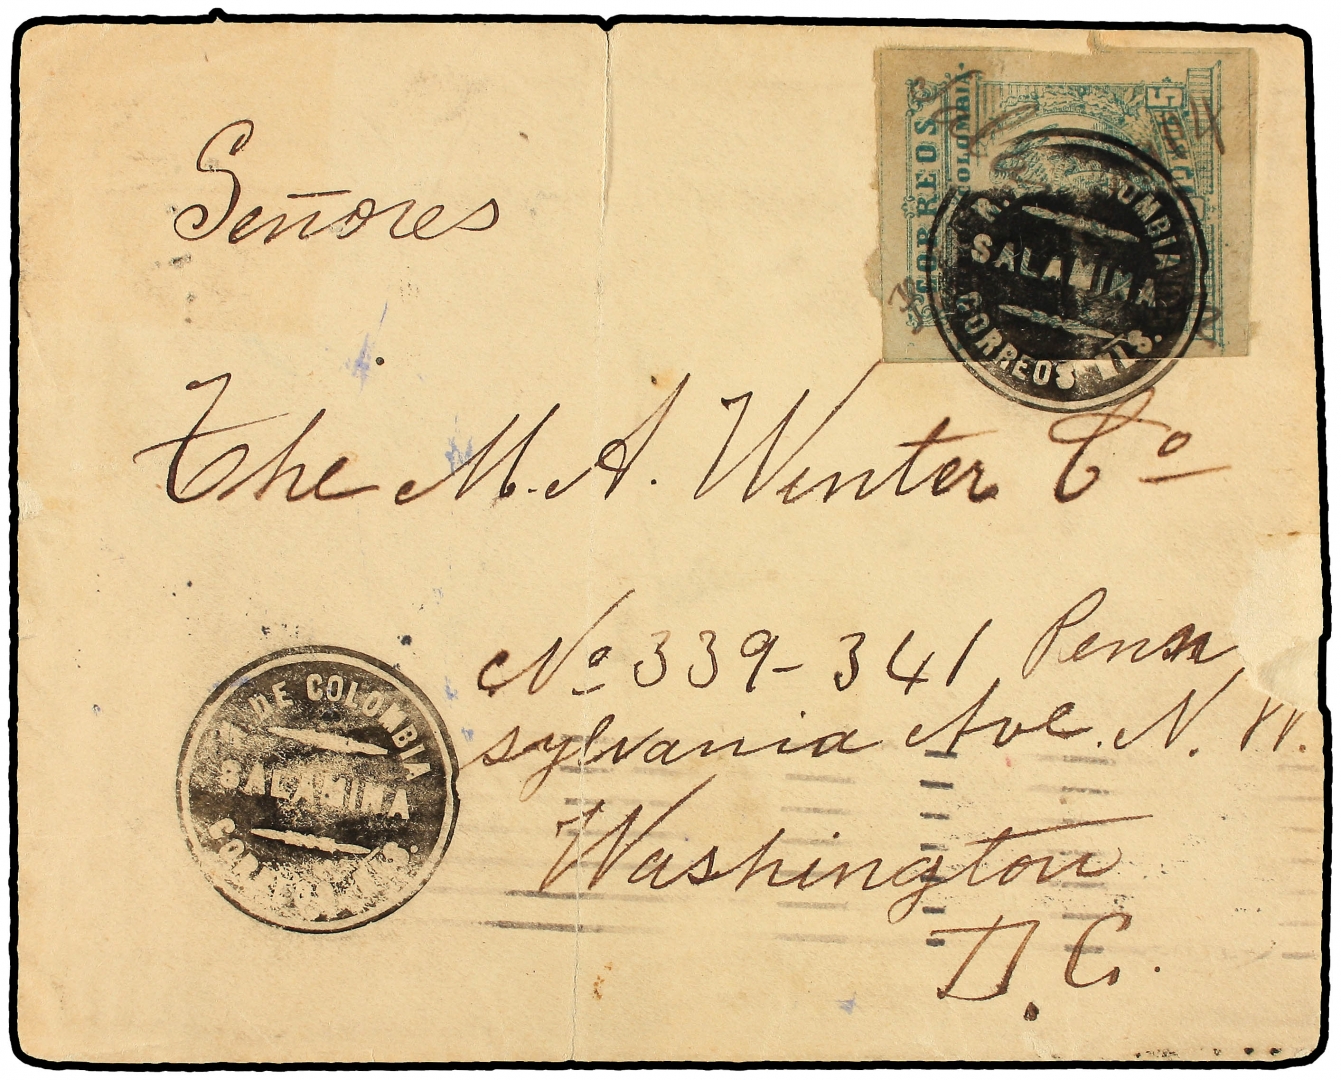 Señores
The M. A. Winter Co
No 339-341 Penn
sylvania Ave. N. W.
Washington
D. C.
CORREOS
COLOMBIA
5
R. COLOMBIA
SALAMINA
CORREOS
DE COLOMBIA
SALAMINA